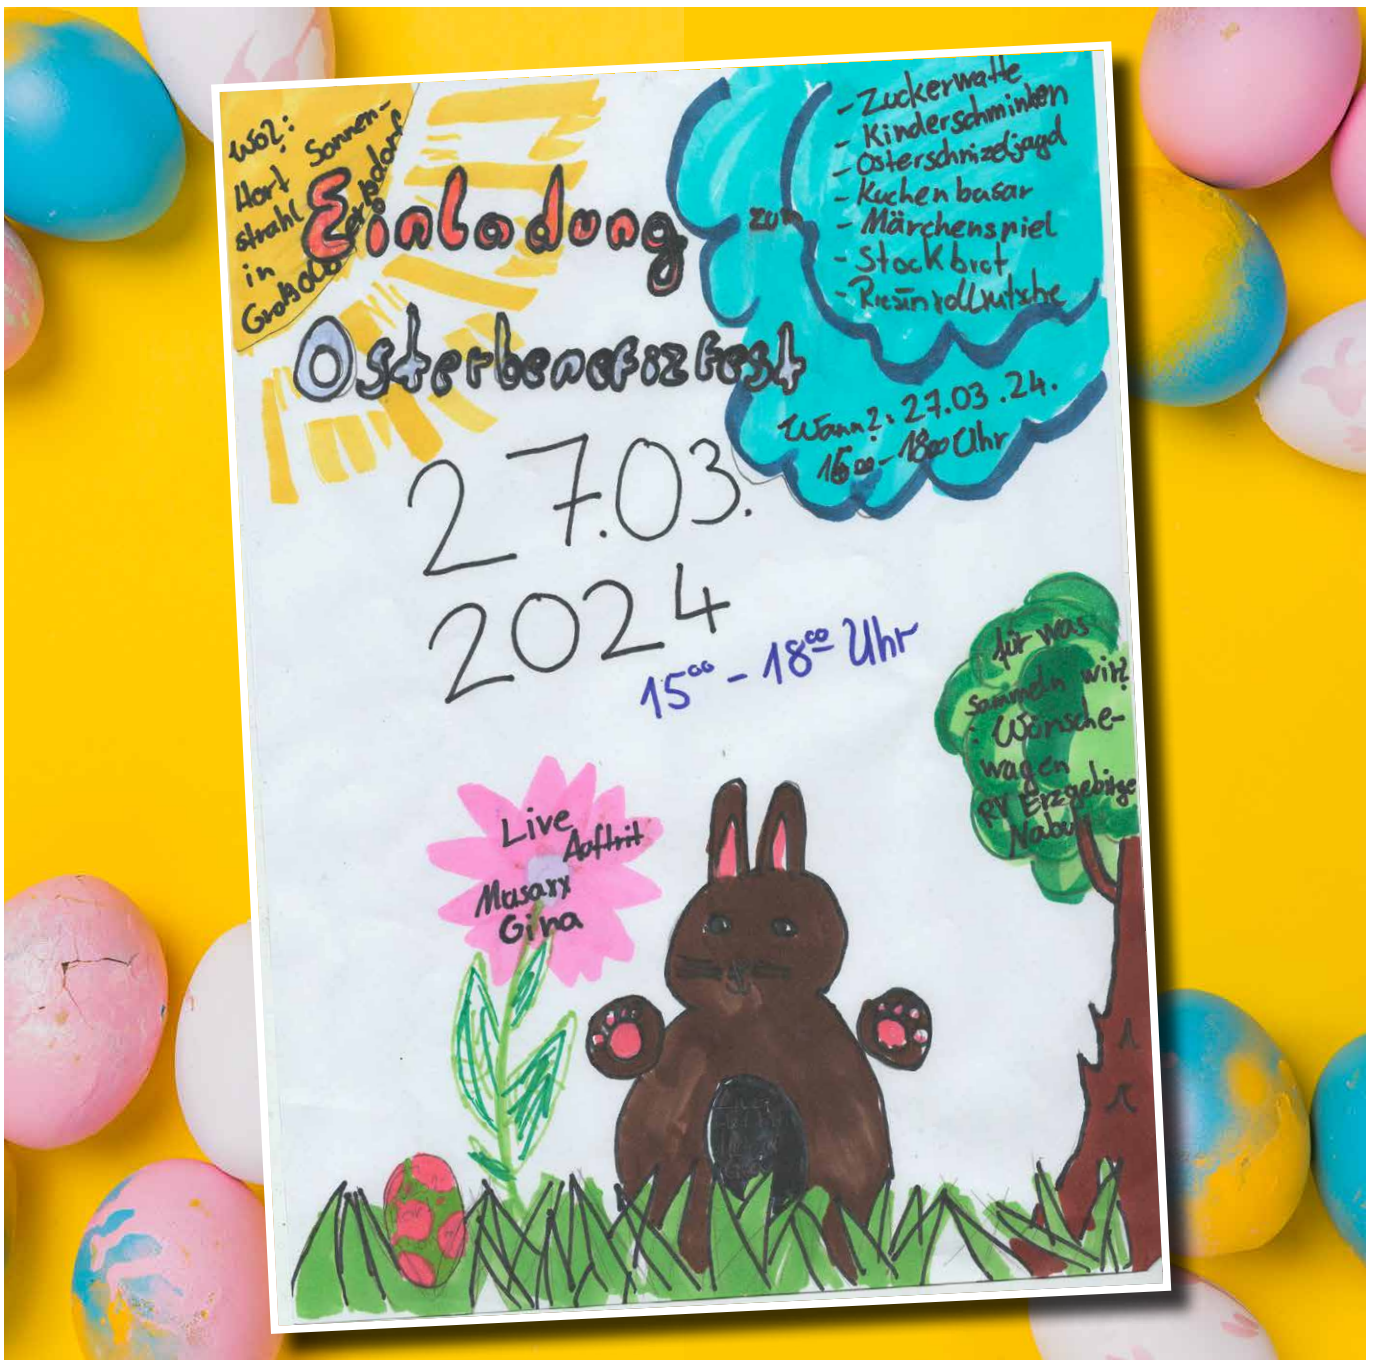 Wo?:
Hort Sonnen-
strahl
in
Großolbersdorf
Einladung
zum
Osterbenefizfest
- Zuckerwatte
- Kinderschminken
- Osterschnizeljagd
- Kuchenbasar
- Märchenspiel
- Stockbrot
- Riesenrollrutsche
Wann?: 27.03.24.
15⁰⁰-18⁰⁰ Uhr
27.03.
2024
15⁰⁰ - 18⁰⁰ Uhr
für was
sammeln wir?
: Wünsche-
wagen
RV Erzgebirge
Nabu
Live
Auftrit
Musaxx
Gina